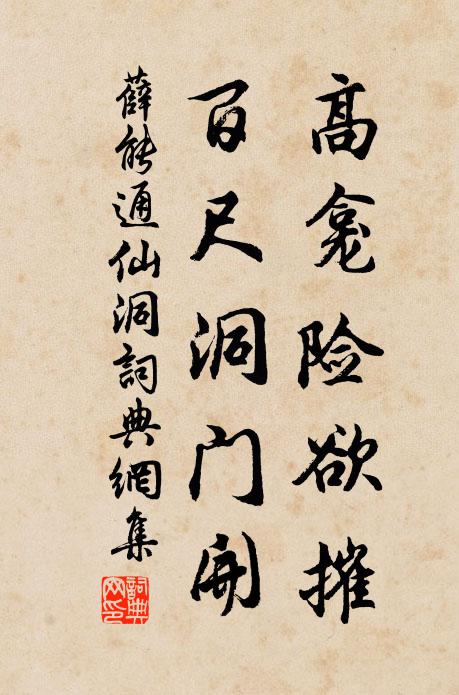 高龛险欲摧
百尺洞门开
薛能通仙洞詞典網集
詞典